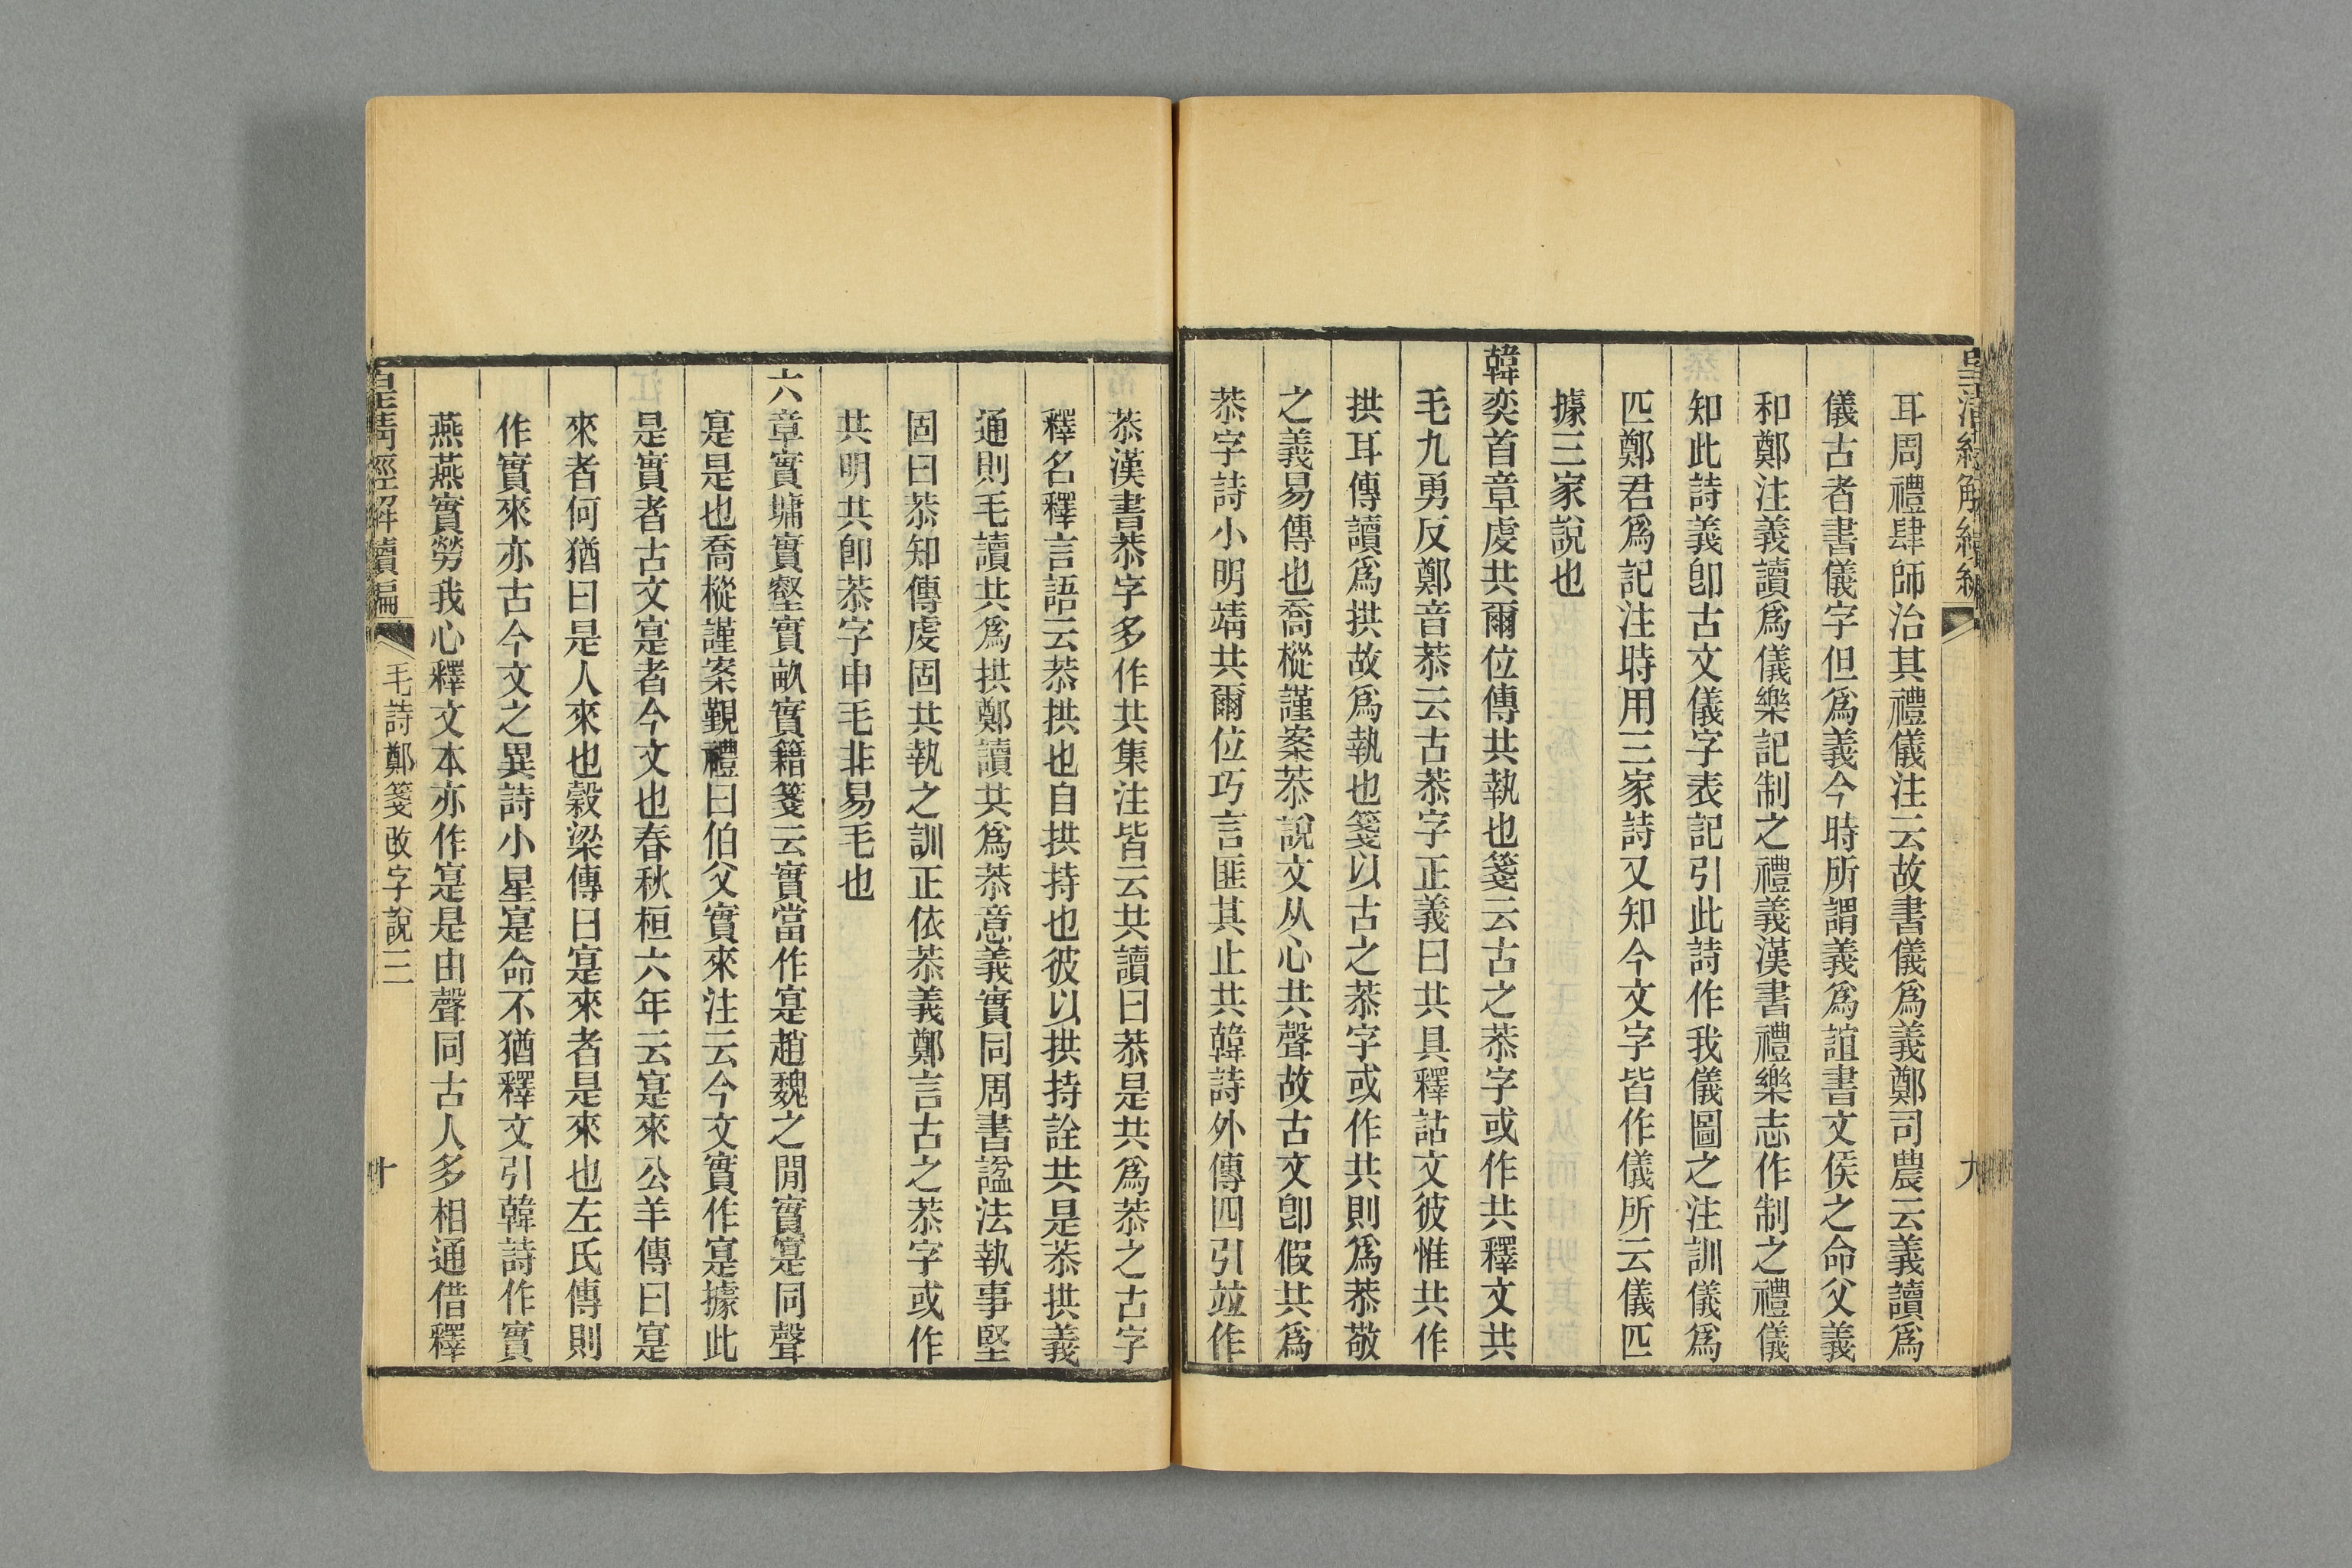 皇清經解續編
九
耳周禮肆師治其禮儀注云故書儀爲義鄭司農云義讀爲
儀古者書儀字但爲義今時所謂義爲誼書文侯之命父義
和鄭注義讀爲儀樂記制之禮義漢書禮樂志作制之禮儀
知此詩義卽古文儀字表記引此詩作我儀圖之注訓儀爲
匹鄭君爲記注時用三家詩又知今文字皆作儀所云儀匹
據三家說也
韓奕首章虔共爾位傳共執也箋云古之恭字或作共釋文共
毛九勇反鄭音恭云古恭字正義曰共具釋詁文彼惟共作
拱耳傳讀爲拱故爲執也箋以古之恭字或作共則爲恭敬
之義易傳也喬樅謹案恭說文从心共聲故古文卽假共爲
恭字詩小明靖共爾位巧言匪其止共韓詩外傳四引竝作
恭漢書恭字多作共集注皆云共讀曰恭是共爲恭之古字
釋名釋言語云恭拱也自拱持也彼以拱持詮共是恭拱義
通則毛讀共爲拱鄭讀共爲恭意義實同周書諡法執事堅
固曰恭知傳虔固共執之訓正依恭義鄭言古之恭字或作
共明共卽恭字申毛非易毛也
六章實墉實壑實畝實籍箋云實當作寔趙魏之閒實寔同聲
寔是也喬樅謹案覲禮曰伯父實來注云今文實作寔據此
是實者古文寔者今文也春秋桓六年云寔來公羊傳曰寔
來者何猶曰是人來也穀梁傳曰寔來者是來也左氏傳則
作實來亦古今文之異詩小星寔命不猶釋文引韓詩作實
燕燕實勞我心釋文本亦作寔是由聲同古人多相通借釋
皇清經解續編
毛詩鄭箋改字說三
十